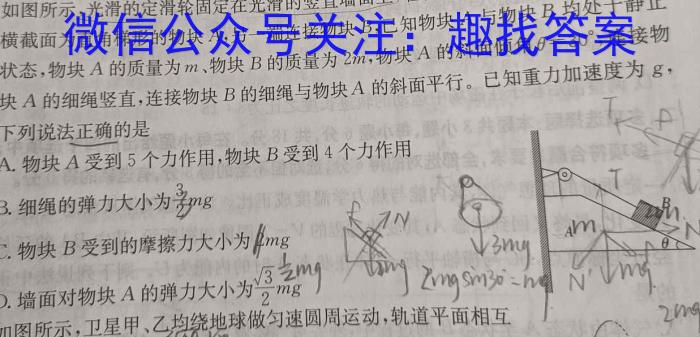 如图所示,光滑的定滑轮固定在光滑的竖直墙面上
横截面为直角梯形的物块A 一端连接物块B 已知物块 与物块B均处于静止
微信公众号关注:趣找答案
状态,物块A的质量为m、物块B的质量为2m,物块A的斜面倾角θ 连接物
块A的细绳竖直,连接物块B的细绳与物块A的斜面平行。已知重力加速度为g,
下列说法正确的是
A. 物块A受到5个力作用,物块B受到4个力作用
B. 细绳的弹力大小为3/2mg
C. 物块B受到的摩擦力大小为 mg
D. 墙面对物块A的弹力大小为√3/2mg
如图所示,卫星甲、乙均绕地球做匀速圆周运动,轨道平面相互
A
B
θ
T
N
3mg
2mgsin30°=mg
1/2mg
mg
N'
T
N
2mg